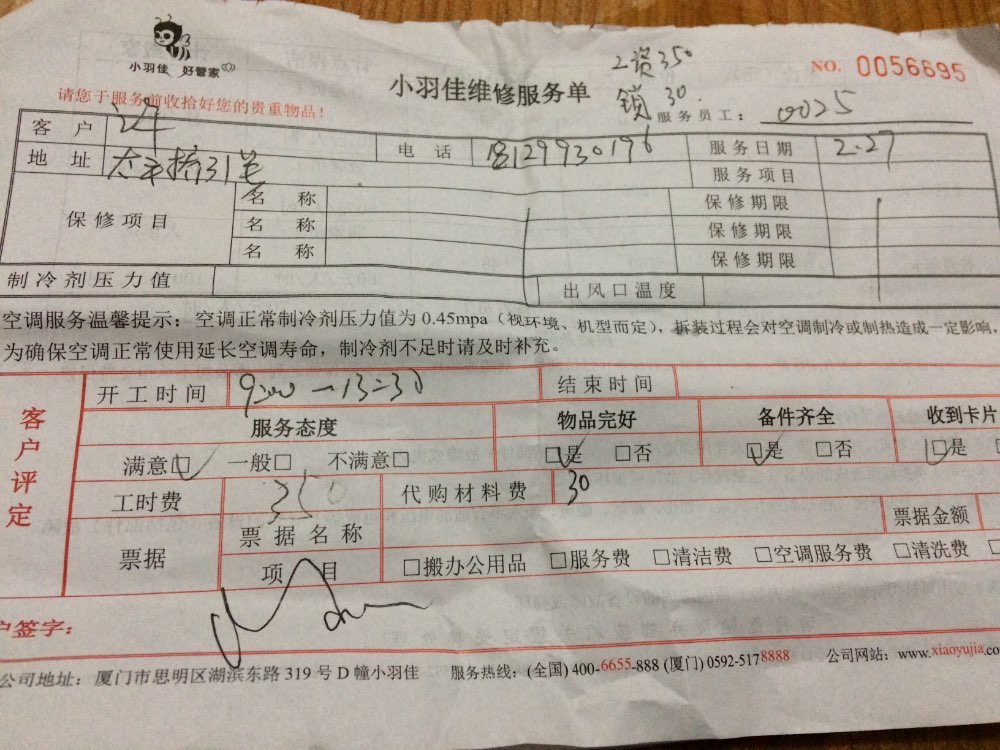 小羽佳 好管家
小羽佳维修服务单
工资350
锁 30
NO. 0056695
请您于服务前收拾好您的贵重物品!
服务员工: 0025
客户
地址 太平桥31号
电话 129930196
服务日期 2.27
服务项目
保修项目
名称 保修期限
名称 保修期限
名称 保修期限
制冷剂压力值 出风口温度
空调服务温馨提示:空调正常制冷剂压力值为 0.45mpa(视环境、机型而定),拆装过程会对空调制冷或制热造成一定影响,
为确保空调正常使用延长空调寿命,制冷剂不足时请及时补充。
客户评定
开工时间 9:00—13:30 结束时间
服务态度 物品完好 备件齐全 收到卡片
满意□ 一般□ 不满意□ □是 □否 □是 □否 □是
工时费 350 代购材料费 30
票据 票据名称 票据金额
项目 □搬办公用品 □服务费 □清洁费 □空调服务费 □清洗费
户签字:
公司地址:厦门市思明区湖滨东路 319 号 D 幢小羽佳 服务热线:(全国) 400-6655-888 (厦门) 0592-5178888 公司网站:www.xiaoyujia.co